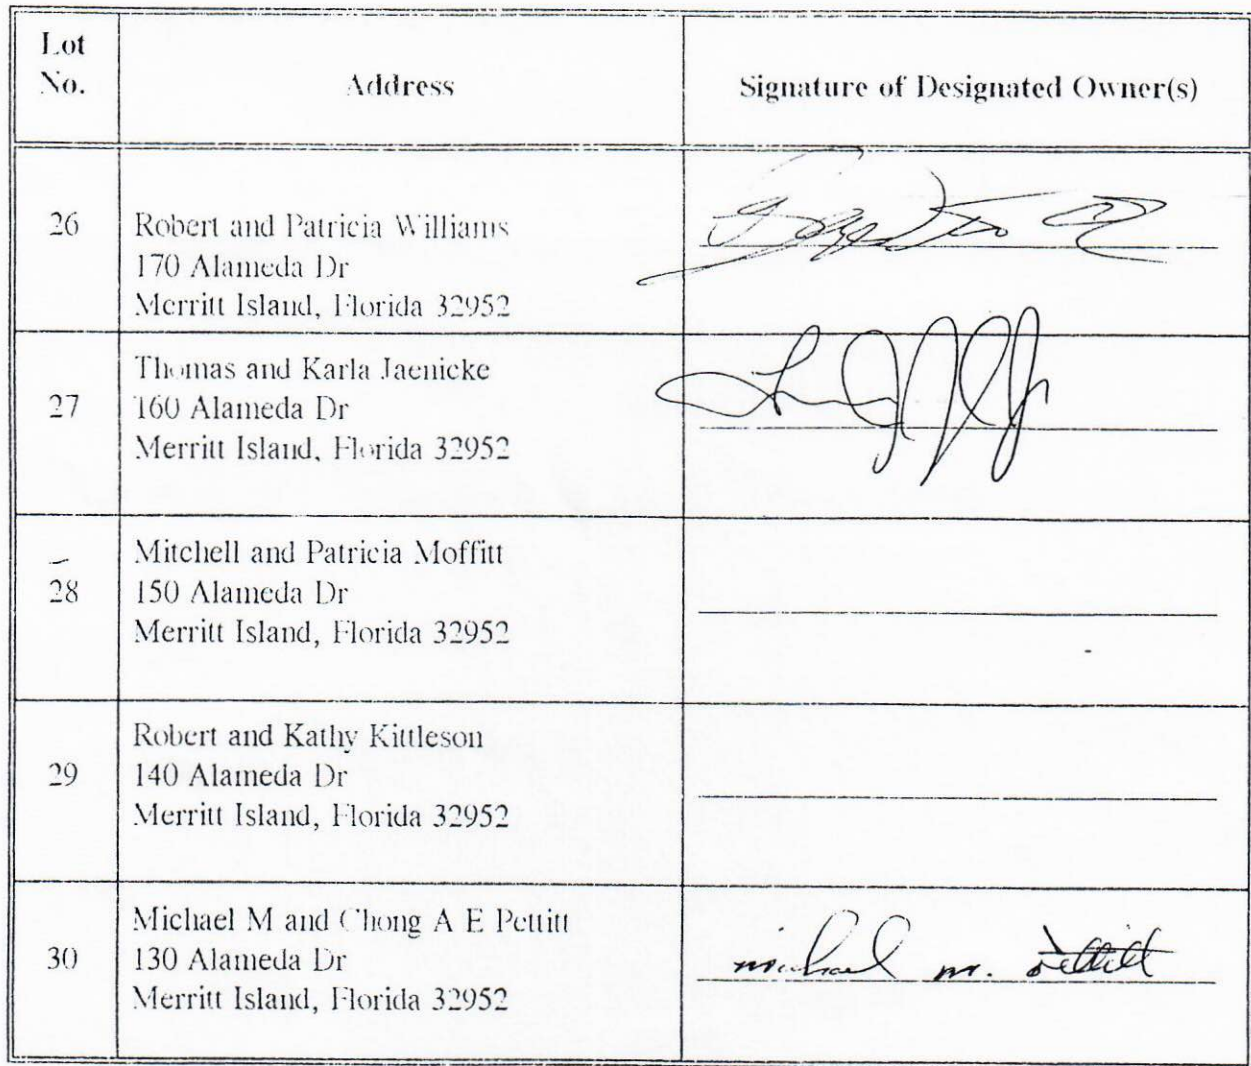 Lot
No.
Address
Signature of Designated Owner(s)
26
Robert and Patricia Williams
170 Alameda Dr
Merritt Island, Florida 32952
27
Thomas and Karla Jaenicke
160 Alameda Dr
Merritt Island, Florida 32952
28
Mitchell and Patricia Moffitt
150 Alameda Dr
Merritt Island, Florida 32952
29
Robert and Kathy Kittleson
140 Alameda Dr
Merritt Island, Florida 32952
30
Michael M and Chong A E Pettitt
130 Alameda Dr
Merritt Island, Florida 32952
michael m. Pettitt